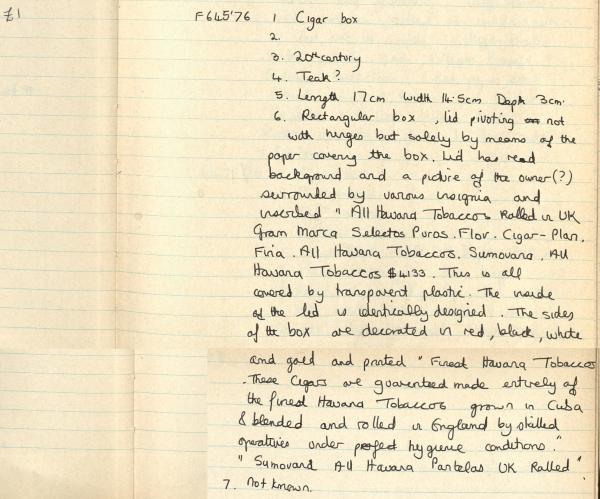 £1
F645'76 1 Cigar box
2.
3. 20th century
4. Teak?
5. Length 17cm width 14.5cm Depth 3cm.
6. Rectangular box, lid pivoting not
with hinges but solely by means of the
paper covering the box. Lid has red
background and a picture of the owner(?)
surrounded by various insignia and
inscribed " All Havana Tobaccos Rolled in UK
Gran Marca Selectos Puros. Flor. Cigar-Plan.
Finia. All Havana Tobaccos. Sumovana. All
Havana Tobaccos $4133. This is all
covered by transparent plastic. The inside
of the lid is identically designed. The sides
of the box are decorated in red, black, white
and gold and printed " Finest Havana Tobaccos
. These Cigars are guaranteed made entirely of
the finest Havana Tobaccos grown in Cuba
& blended and rolled in England by skilled
operatives under perfect hygiene conditions."
" Sumovana All Havana Panetelas UK Rolled".
7. Not known.